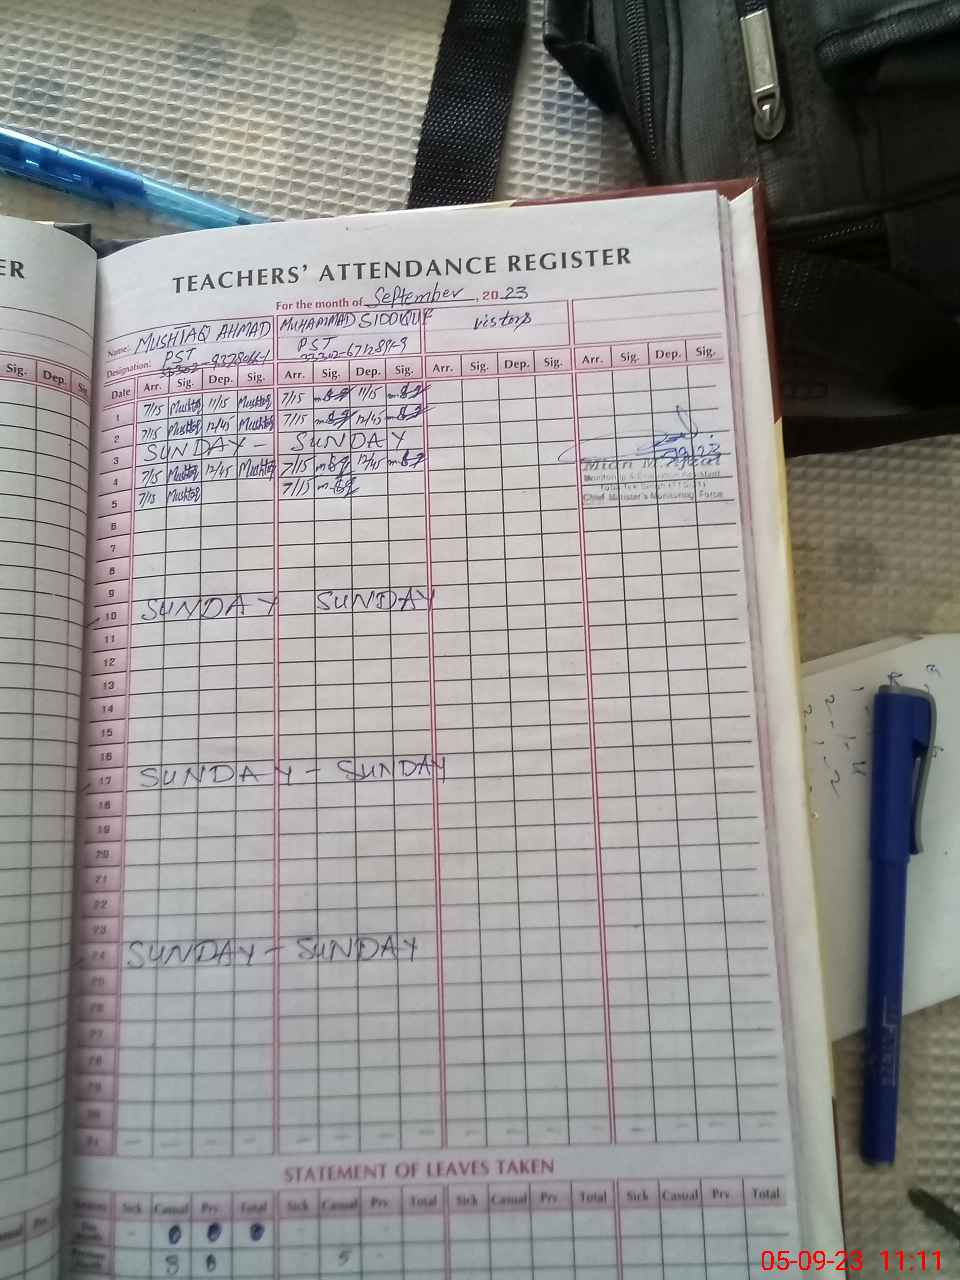 ER
TEACHERS' ATTENDANCE REGISTER
For the month of September, 2023
Name: MUSHTAQ AHMAD MUHAMMAD SIDDIQUE visitors
Designation: PST PST
Sig. Dep. Sig.
Date Arr. Sig. Dep. Sig. Arr. Sig. Dep. Sig. Arr. Sig. Dep. Sig. Arr. Sig. Dep. Sig.
1 7/15 Mushtaq 11/15 Mushtaq 7/15 11/15
2 7/15 Mushtaq 12/45 Mushtaq 7/15 12/45
3 SUNDAY - SUNDAY
4 7/15 Mushtaq 12/45 Mushtaq 7/15 12/45
5 7/15 Mushtaq 7/15
Chief Minister's Monitoring Force
6
7
8
9
10 SUNDAY SUNDAY
11
12
13
14
15
16
17 SUNDAY - SUNDAY
18
19
20
21
22
23
24 SUNDAY - SUNDAY
25
26
27
28
29
30
31
STATEMENT OF LEAVES TAKEN
Sick Casual Prv. Total Sick Casual Prv. Total Sick Casual Prv. Total Sick Casual Prv. Total
05-09-23 11:11